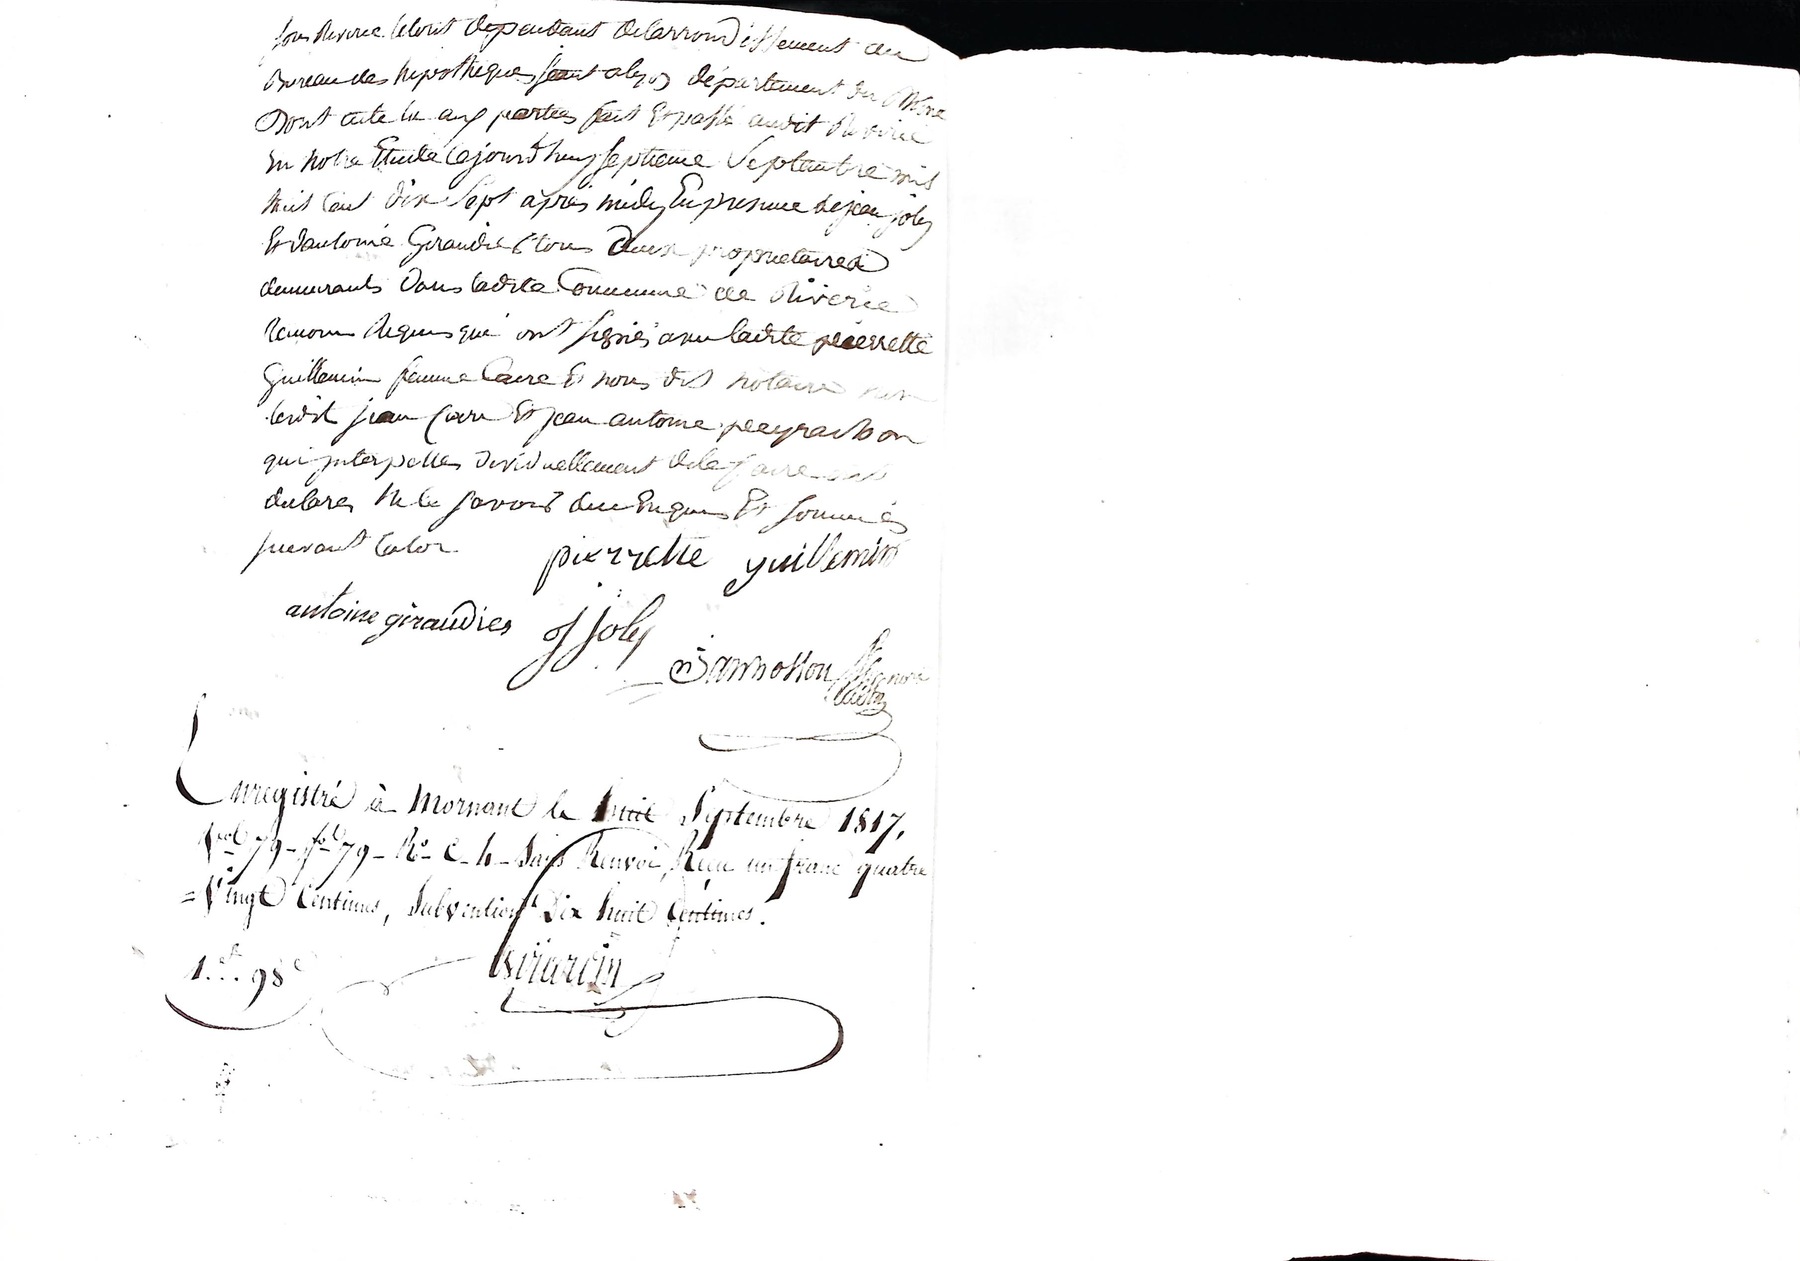 sous Riverie le tout dependant delarrondissement du
Bureau des hipotheques seant alyon département du Rhone
Dont acte lu aux parties fait Et passé audit Riverie
En notre Etude Cejourdhuy septieme Septembre mil
huit Cent dix Sept après midy En presence de jean joly
Et dantoine Giraudier tous deux proprietaires
demeurants dans ladite Commune de Riverie
temoins Requis qui ont signés avec ladite pierrette
Guillemin femme Et nous dit notaire non
ledit jean Et jean antoine peyrachon
qui jnterpelles de le faire ont
declares Ne le savoir Enquis Et sommés
suivant laloi
pierrette guillemin
antoine giraudier j joly
Enregistré à Mornant le huit Septembre 1817,
vol 79 - fol 79 - Ro - C - 4 - Sans Renvoi, Reçu un franc quatre
=Vingt Centimes, Subvention Dix huit Centimes.
1.f 98c
Girardin